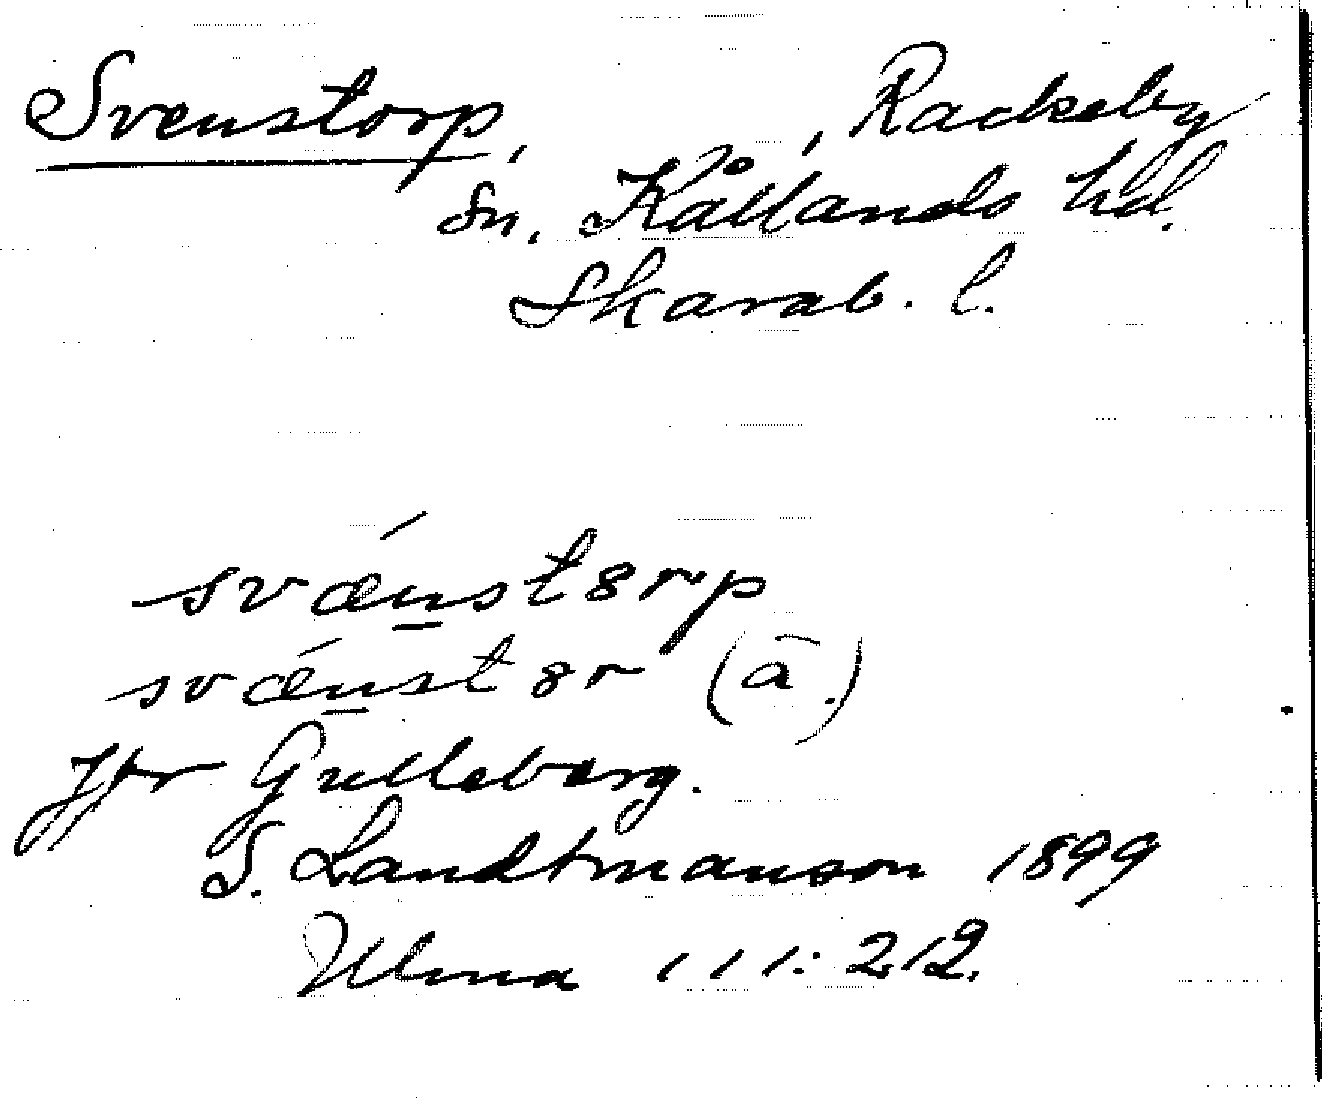 Svenstorp, , Rackeby
sn, Kållands hd.
Skarab. l.
svǽnst8rp
svǽnst8r (ā.)
Jfr Gulleberg.
S. Landtmanson 1899
Ulma 111:212.